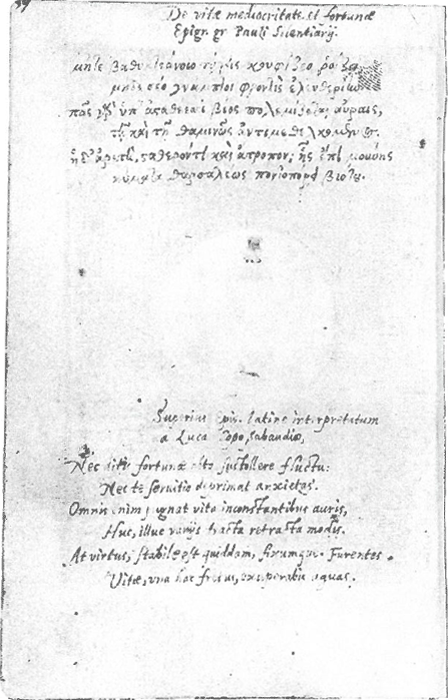 29
De vitæ mediocritate et fortunæ
Epigr. gr. Pauli Scientiarij.
μήτε βαθυκτεάνοιο τύχης κουφίζεο ῥοίζῳ
μήτε σέο γνάμπτοι φροντὶς ἐλευθερίην
πᾶς γὰρ ὑπ' βίος πελεμίζεται αὔραις,
τῇ καὶ τῇ θαμινῶς ἀντιμεθελκόμενος.
ἡ δ' ἀρετὴ, σταθερόν τι καὶ ἄτροπον; ἧς ἐπὶ μούνης
κύματα θαρσαλέως ποντοπόρει βιότου.
Superius Epig. latine interpretatum
a Luca Sabaudiæ,
Nec ditis fortunæ alto sustollere fluctu:
Nec te servitio deprimat anxietas.
Omnis enim pugnat vita inconstantibus auris,
Huc, illuc varijs tracta retracta modis.
At virtus, stabile est quiddam, firmumque. Furentes
Vitæ, una hac fretus, exsuperabis aquas.